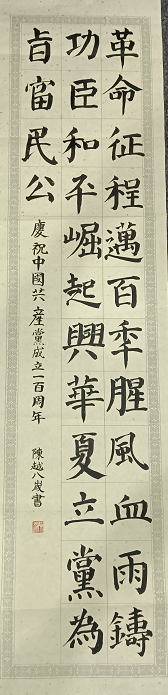 革命征程邁百秊腥風血雨鑄
功臣和平崛起興華夏立黨為
旨富民公
慶祝中國共產黨成立一百周年 陳越八歲書